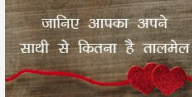 जानिए आपका अपने
साथी से कितना है तालमेल